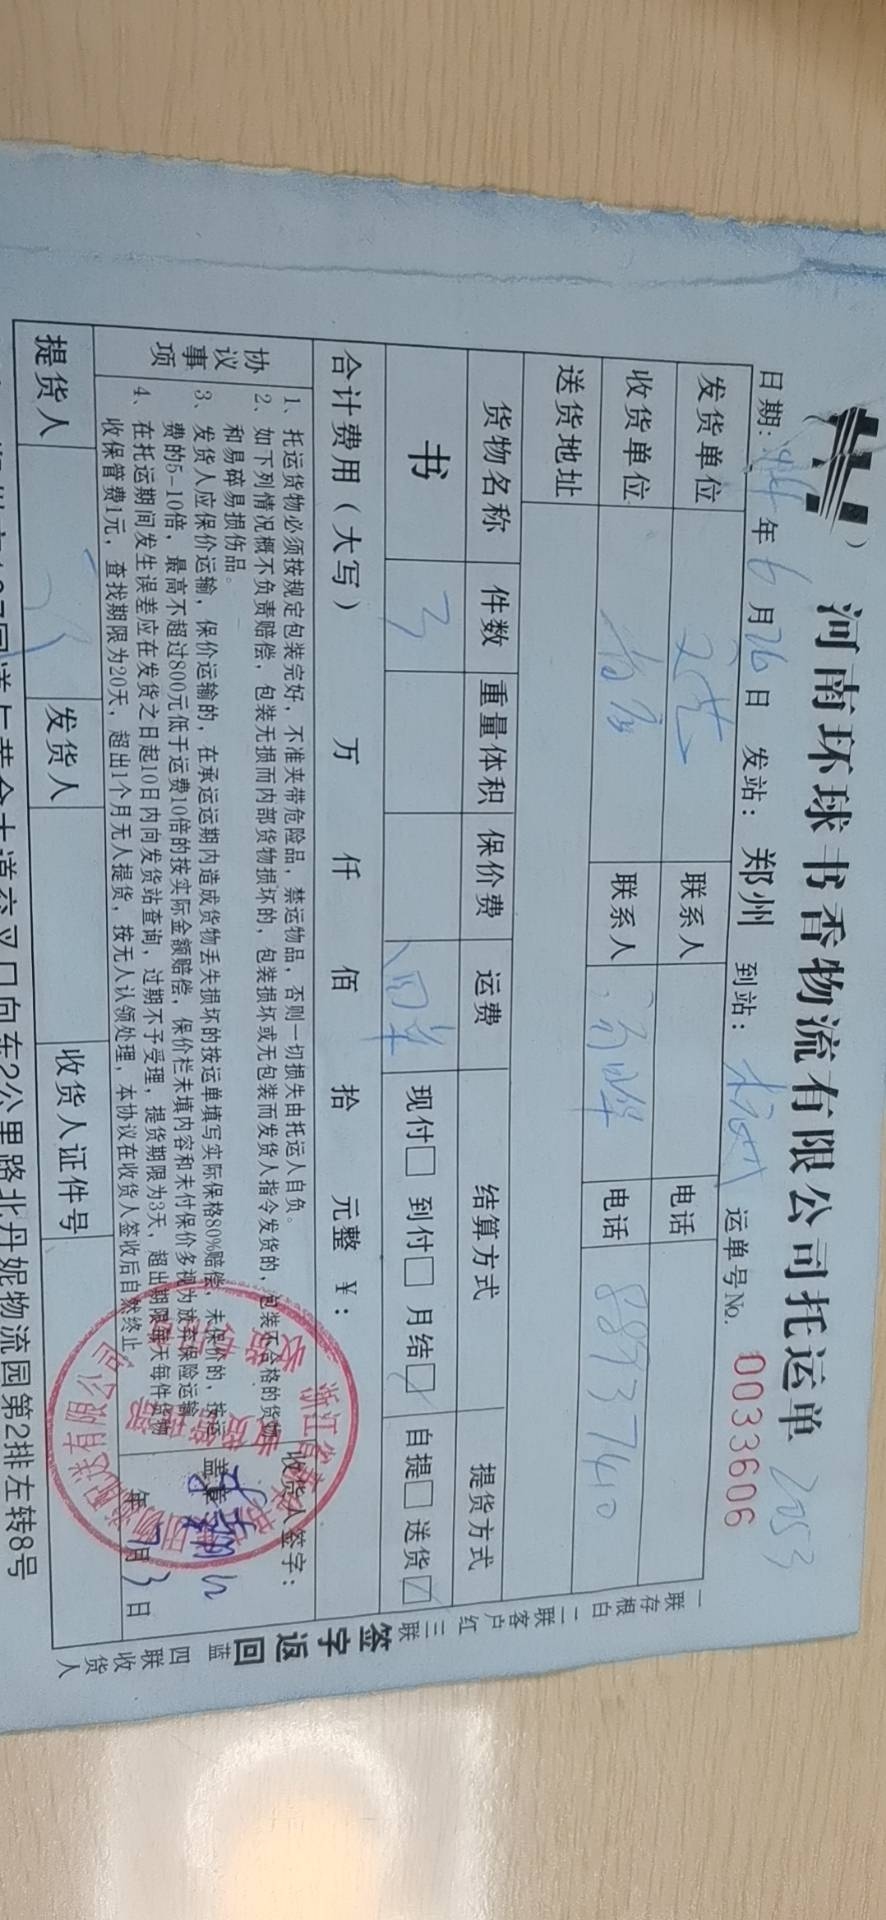 河南环球书香物流有限公司托运单 2053
日期: 年6月26日 发站: 郑州 到站: 杭州 运单号No. 0033606
发货单位 文艺 联系人 电话
收货单位 联系人 电话 88937410
送货地址
货物名称 件数 重量体积 保价费 运费 结算方式 提货方式
书 3 回单 现付□ 到付□ 月结☑ 自提□ 送货☑
合计费用(大写) 万 仟 佰 拾 元整 ¥:
协议事项
1、托运货物必须按规定包装完好，不准夹带危险品，禁运物品，否则一切损失由托运人自负。
2、如下列情况概不负责赔偿，包装无损而内部货物损坏的，包装损坏或无包装而发货人指令发货的，包装不合格的货物
和易碎易损伤品。
3、发货人应保价运输，保价运输的，在承运运期内造成货物丢失损坏的按运单填写实际保格80%赔偿，未保价的，按运
费的5-10倍，最高不超过800元低于运费10倍的按实际金额赔偿，保价栏未填内容和未付保价多视为放弃保险运输
4、在托运期间发生误差应在发货之日起10日内向发货站查询，过期不予受理，提货期限为3天，超出期限每天每件货物
收保管费1元，查找期限为20天，超出1个月无人提货，按无人认领处理，本协议在收货人签收后自然终止
收货人签字:
盖章
年7月3日
提货人 发货人 收货人证件号
道与黄金大道交叉口向东2公里路北丹妮物流园第2排左转8号
一联存根白 二联客户红 三联签字返回蓝 四联收货人